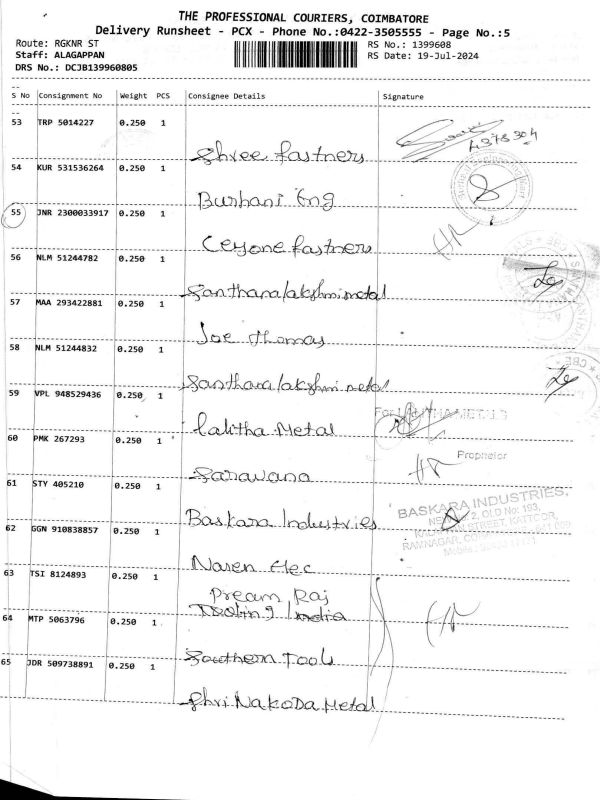 THE PROFESSIONAL COURIERS, COIMBATORE
Delivery Runsheet - PCX - Phone No.:0422-3505555 - Page No.:5
Route: RGKNR ST
RS No.: 1399608
Staff: ALAGAPPAN
RS Date: 19-Jul-2024
DRS No.: DCJB139960805
S No Consignment No Weight PCS Consignee Details Signature
53 TRP 5014227 0.250 1
Shree fastners
54 KUR 531536264 0.250 1
Burhani Eng
55 JNR 2300033917 0.250 1
Ceyone fastners
56 NLM 51244782 0.250 1
Santhanalakshmi metal
57 MAA 293422881 0.250 1
Joe Thomas
58 NLM 51244832 0.250 1
Santhanalakshmi metal
59 VPL 948529436 0.250 1
Lalitha Metal
60 PMK 267293 0.250 1
Proprietor
Saravana
61 STY 405210 0.250 1
BASKARA INDUSTRIES,
Baskara Industries
62 GGN 910838857 0.250 1
Naren Elec
63 TSI 8124893 0.250 1
Pream Raj
Tooling India
64 MTP 5063796 0.250 1
Southern Tools
65 JDR 509738891 0.250 1
Shri Nakoda Metal